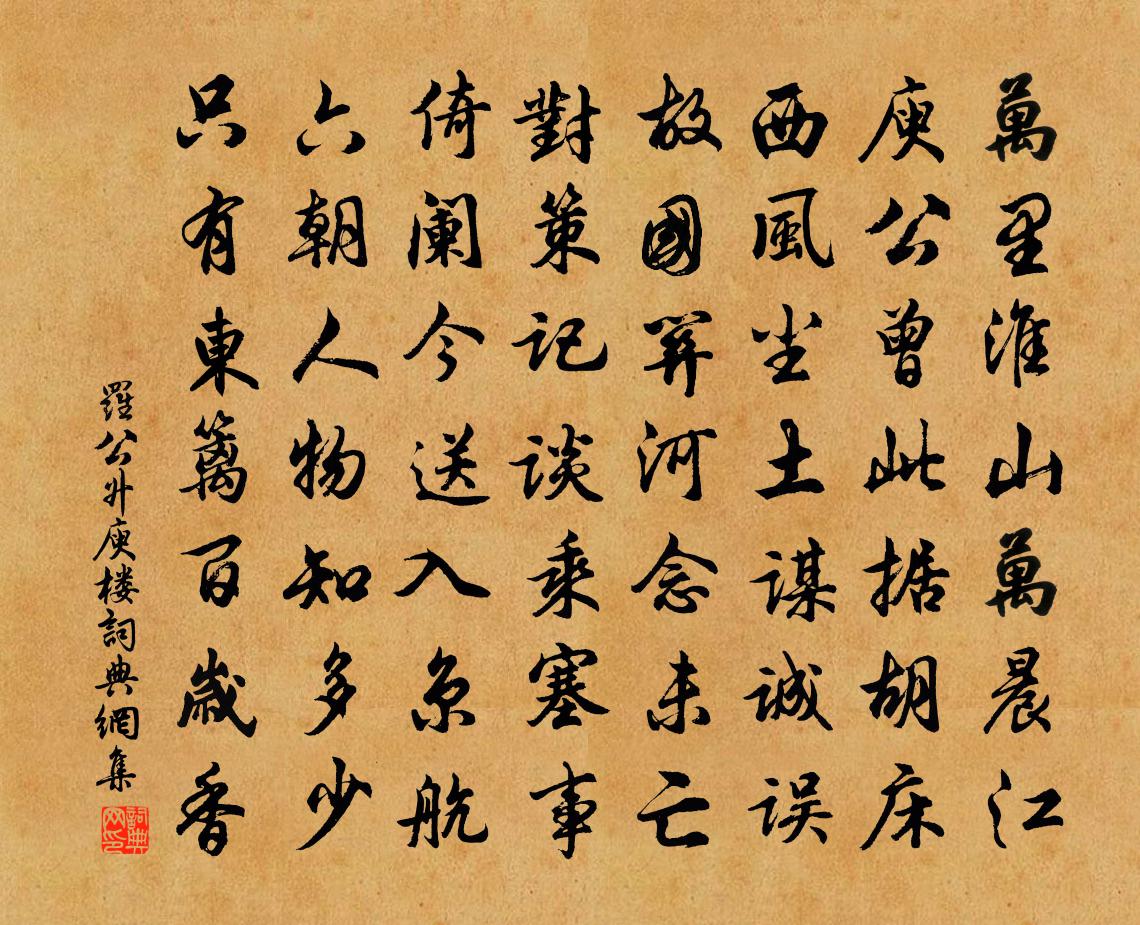 萬里淮山萬晨江
庾公曾此据胡床
西風尘土謀誠誤
故國關河念未亡
對策記談乘塞事
倚闌今送入京航
六朝人物知多少
只有東籬百歲香
羅公升庾楼詞典網集
詞典网印